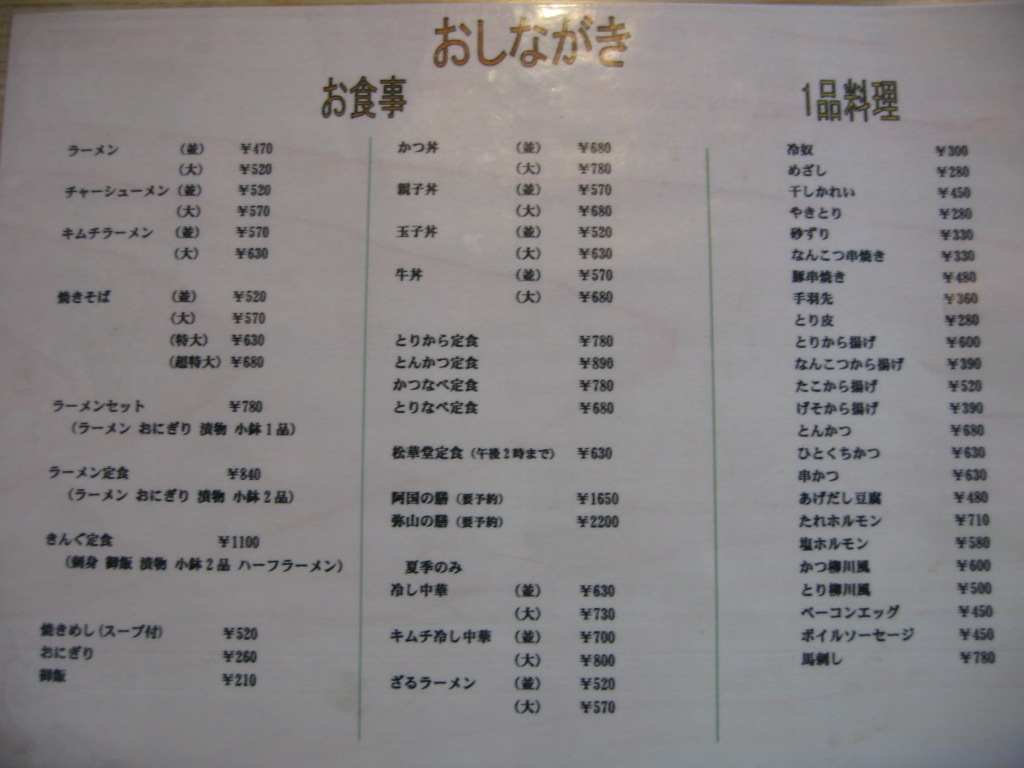 おしながき
お食事
ラーメン (並) ¥470
(大) ¥520
チャーシューメン (並) ¥520
(大) ¥570
キムチラーメン (並) ¥570
(大) ¥630
焼きそば (並) ¥520
(大) ¥570
(特大) ¥630
(超特大) ¥680
ラーメンセット ¥780
(ラーメン おにぎり 漬物 小鉢1品)
ラーメン定食 ¥840
(ラーメン おにぎり 漬物 小鉢2品)
きんぐ定食 ¥1100
(刺身 御飯 漬物 小鉢2品 ハーフラーメン)
焼きめし(スープ付) ¥520
おにぎり ¥260
御飯 ¥210
かつ丼 (並) ¥680
(大) ¥780
親子丼 (並) ¥570
(大) ¥680
玉子丼 (並) ¥520
(大) ¥630
牛丼 (並) ¥570
(大) ¥680
とりから定食 ¥780
とんかつ定食 ¥890
かつなべ定食 ¥780
とりなべ定食 ¥680
松華堂定食(午後2時まで) ¥630
阿国の膳(要予約) ¥1650
弥山の膳(要予約) ¥2200
夏季のみ
冷し中華 (並) ¥630
(大) ¥730
キムチ冷し中華 (並) ¥700
(大) ¥800
ざるラーメン (並) ¥520
(大) ¥570
1品料理
冷奴 ¥300
めざし ¥280
干しかれい ¥450
やきとり ¥280
砂ずり ¥330
なんこつ串焼き ¥330
豚串焼き ¥480
手羽先 ¥360
とり皮 ¥280
とりから揚げ ¥600
なんこつから揚げ ¥390
たこから揚げ ¥520
げそから揚げ ¥390
とんかつ ¥680
ひとくちかつ ¥630
串かつ ¥630
あげだし豆腐 ¥480
たれホルモン ¥710
塩ホルモン ¥580
かつ柳川風 ¥600
とり柳川風 ¥500
ベーコンエッグ ¥450
ボイルソーセージ ¥450
馬刺し ¥780